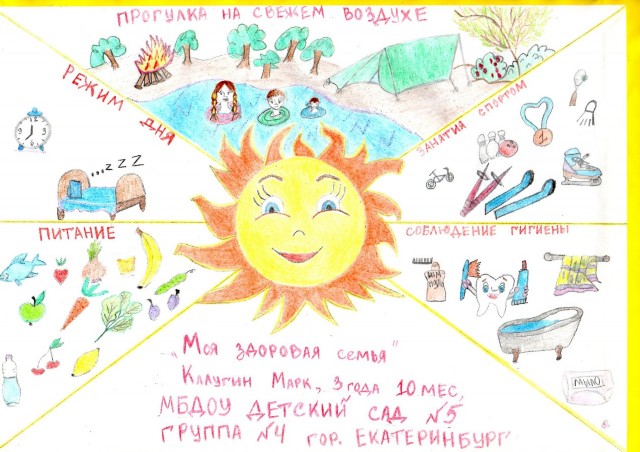 ПРОГУЛКА НА СВЕЖЕМ ВОЗДУХЕ
РЕЖИМ ДНЯ
ЗАНЯТИЯ СПОРТОМ
1
...ZZZ
ПИТАНИЕ
СОБЛЮДЕНИЕ ГИГИЕНЫ
МЫЛО
„Моя здоровая семья"
Калугин Марк, 3 года 10 мес,
МБДОУ ДЕТСКИЙ САД №5
ГРУППА №4 ГОР. ЕКАТЕРИНБУРГ